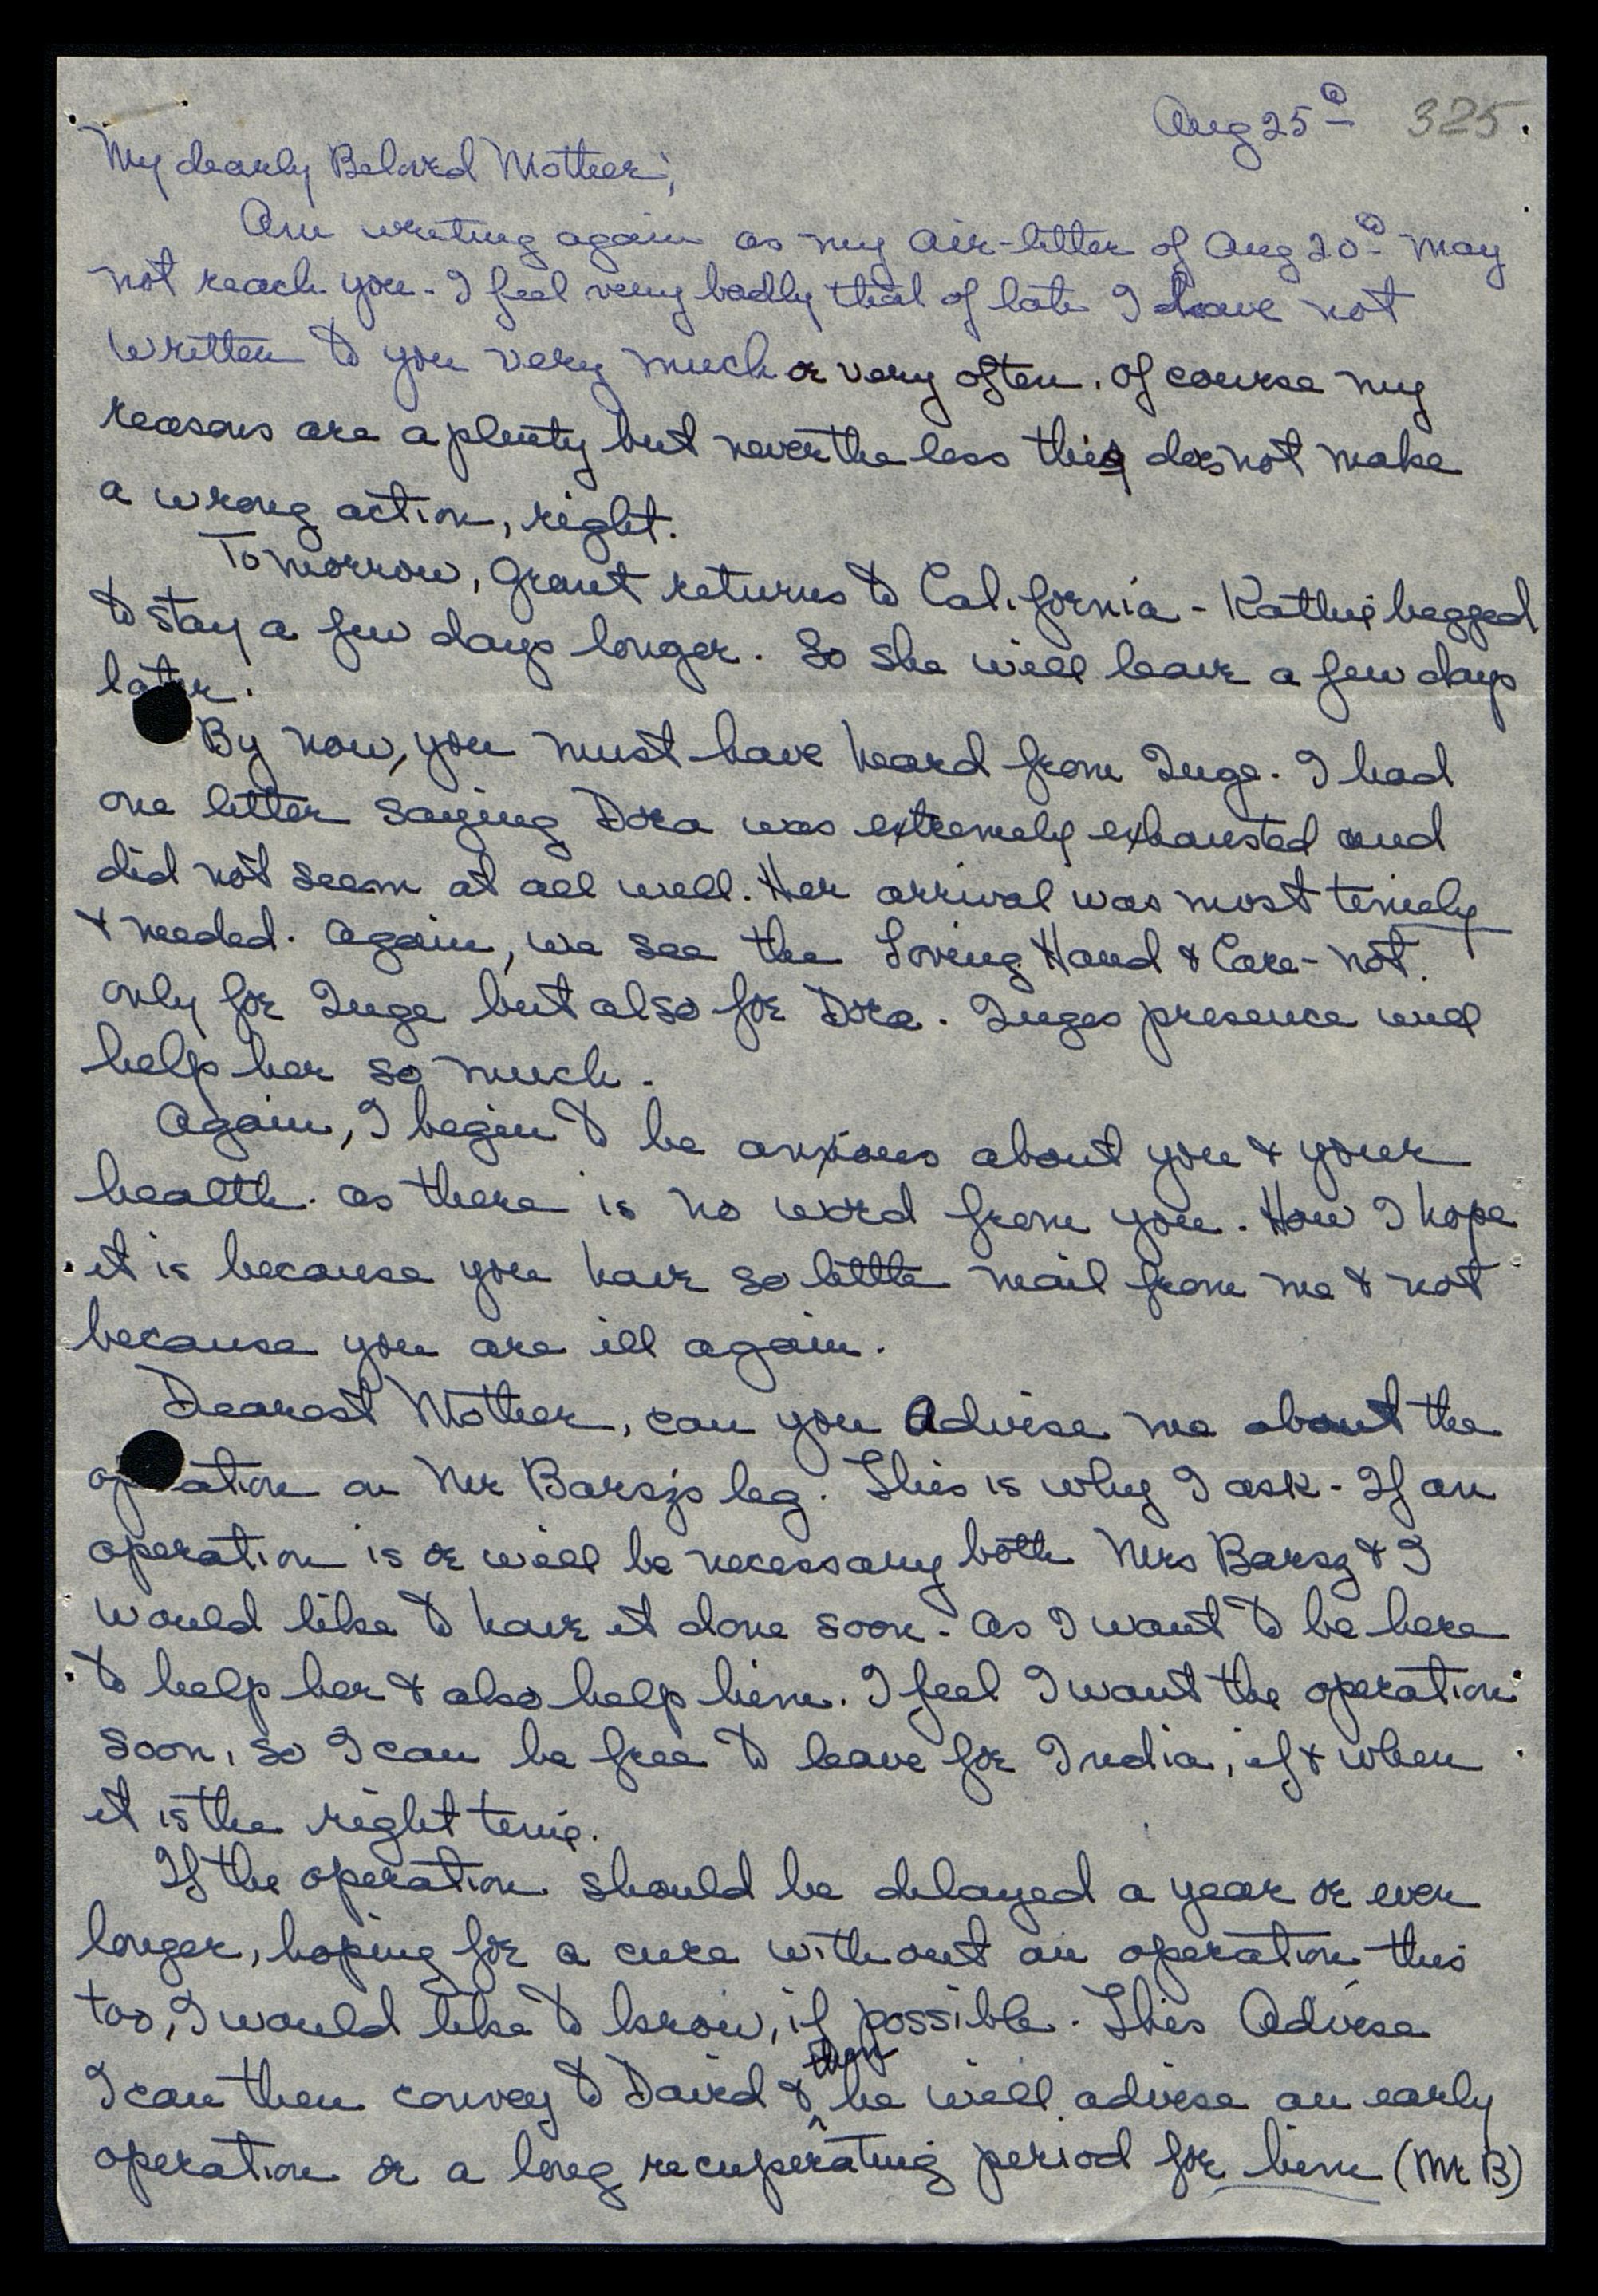 Aug 25th 325.
My dearly Beloved Mother;
Am writing again as my air-letter of Aug 20th may
not reach you. I feel very badly that of late I have not
written to you very much or very often. Of course my
reasons are a plenty but never the less this does not make
a wrong action, right.
Tomorrow, Grant returns to California - Kathie begged
to stay a few days longer. So she will leave a few days
later.
By now, you must have heard from Inge. I had
one letter saying Dora was extremely exhausted and
did not seem at all well. Her arrival was most timely
& needed. Again, we see the Loving Hand & Care - not
only for Inge but also for Dora. Inges presence will
help her so much.
Again, I begin to be anxious about you & your
health. as there is no word from you. How I hope
it is because you have so little mail from me & not
because you are ill again.
Dearest Mother, can you Advise me about the
op ation on Mr Barsjs leg. This is why I ask - If an
operation is or will be necessary both Mrs Barsz & I
would like to have it done soon. As I want to be here
to help her & also help him. I feel I want the operation
soon, so I can be free to leave for India, if & when
it is the right time.
If the operation should be delayed a year or even
longer, hoping for a cure without an operation this
too, I would like to know, if possible. This Advise
I can then convey to David & then he will advise an early
operation or a long recuperating period for him (Mr B)